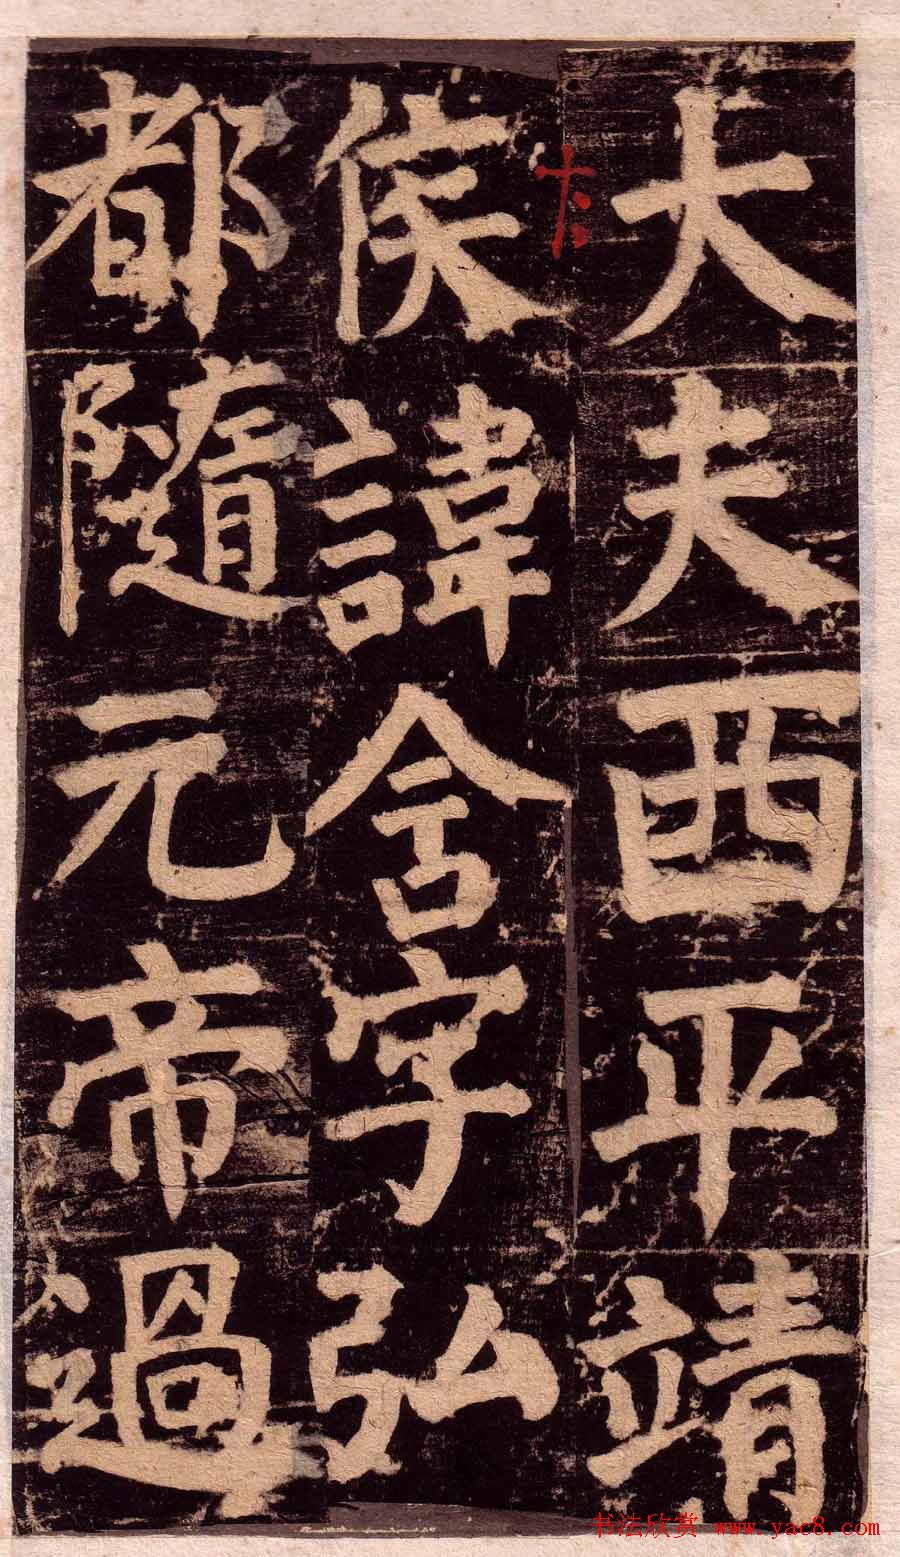 大夫西平靖
侯諱含字弘
都隨元帝過
书法欣赏 www.yac8.com